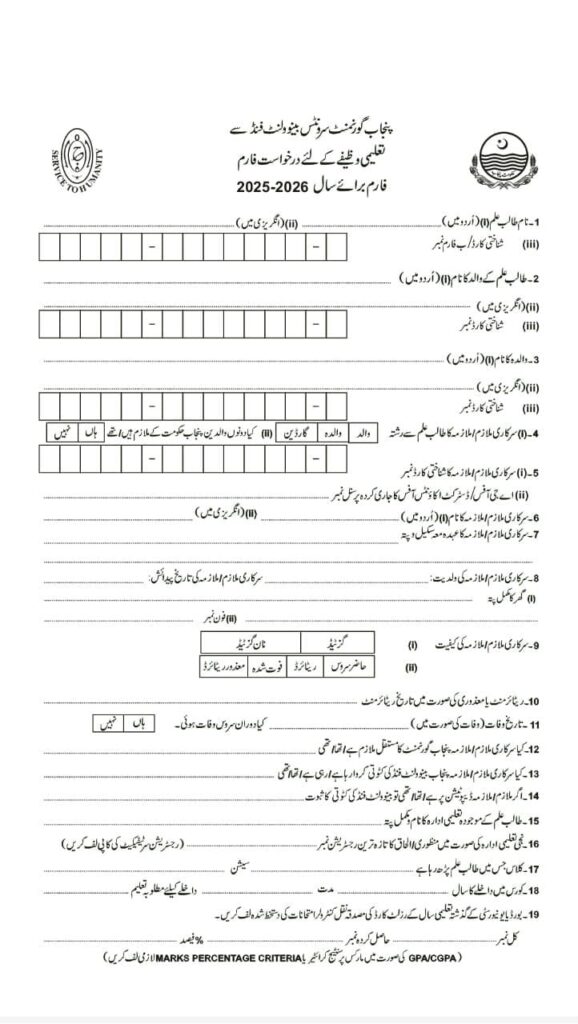 پنجاب گورنمنٹ سرونٹس بینوولنٹ فنڈ سے
تعلیمی وظیفے کے لئے درخواست فارم
فارم برائے سال 2026-2025
SERVICE TO HUMANITY
1۔ نام طالب علم (i) (اُردو میں) (ii) (انگریزی میں)
(iii) شناختی کارڈ/ب فارم نمبر
2۔ طالب علم کے والد کا نام (i) (اُردو میں)
(ii) (انگریزی میں)
(iii) شناختی کارڈ نمبر
3۔ والدہ کا نام (i) (اُردو میں)
(ii) (انگریزی میں)
(iii) شناختی کارڈ نمبر
4۔ (i) سرکاری ملازم/ملازمہ کا طالب علم سے رشتہ والد والدہ گارڈین (ii) کیا دونوں والدین پنجاب حکومت کے ملازم ہیں/تھے ہاں نہیں
5۔ (i) سرکاری ملازم/ملازمہ کا شناختی کارڈ نمبر
(ii) اے جی آفس/ڈسٹرکٹ اکاؤنٹس آفس کا جاری کردہ پرسنل نمبر
6۔ سرکاری ملازم/ملازمہ کا نام (i) (اُردو میں) (ii) (انگریزی میں)
7۔ سرکاری ملازم/ملازمہ کا عہدہ معہ سکیل و پتہ
8۔ سرکاری ملازم/ملازمہ کی ولدیت: سرکاری ملازم/ملازمہ کی تاریخ پیدائش:
(i) گھر کا مکمل پتہ
(ii) فون نمبر
9۔ سرکاری ملازم/ملازمہ کی کیفیت (i) گزیٹڈ نان گزیٹڈ
(ii) حاضر سروس ریٹائرڈ فوت شدہ معذور ریٹائرڈ
10۔ ریٹائرمنٹ یا معذوری کی صورت میں تاریخ ریٹائرمنٹ
11 ۔ تاریخ وفات (وفات کی صورت میں) کیا دوران سروس وفات ہوئی۔ ہاں نہیں
12۔ کیا سرکاری ملازم/ملازمہ پنجاب گورنمنٹ کا مستقل ملازم ہے/تھا/تھی
13۔ کیا سرکاری ملازم/ملازمہ پنجاب بینوولنٹ فنڈ کی کٹوتی کروا رہا ہے/رہی ہے/تھا/تھی
14۔ اگر ملازم/ملازمہ ڈیپوٹیشن پر ہے/تھا/تھی تو بینوولنٹ فنڈ کی کٹوتی کا ثبوت
15۔ طالب علم کے موجودہ تعلیمی ادارہ کا نام و مکمل پتہ
16۔ نجی تعلیمی ادارہ کی صورت میں منظوری/الحاق کا تازہ ترین رجسٹریشن نمبر (رجسٹریشن سرٹیفکیٹ کی کاپی لف کریں)
17۔ کلاس جس میں طالب علم پڑھ رہا ہے سیشن
18۔ کورس میں داخلے کا سال مدت داخلے کیلئے مطلوبہ تعلیم
19۔ بورڈ یا یونیورسٹی کے گذشتہ تعلیمی سال کے رزلٹ کارڈ کی مصدقہ نقل کنٹرولر امتحانات کی دستخط شدہ لف کریں۔
کل نمبر حاصل کردہ نمبر %فیصد
(GPA/CGPA کی صورت میں مارکس پرسنٹیج کرائٹیریا MARKS PERCENTAGE CRITERIA لازمی لف کریں)